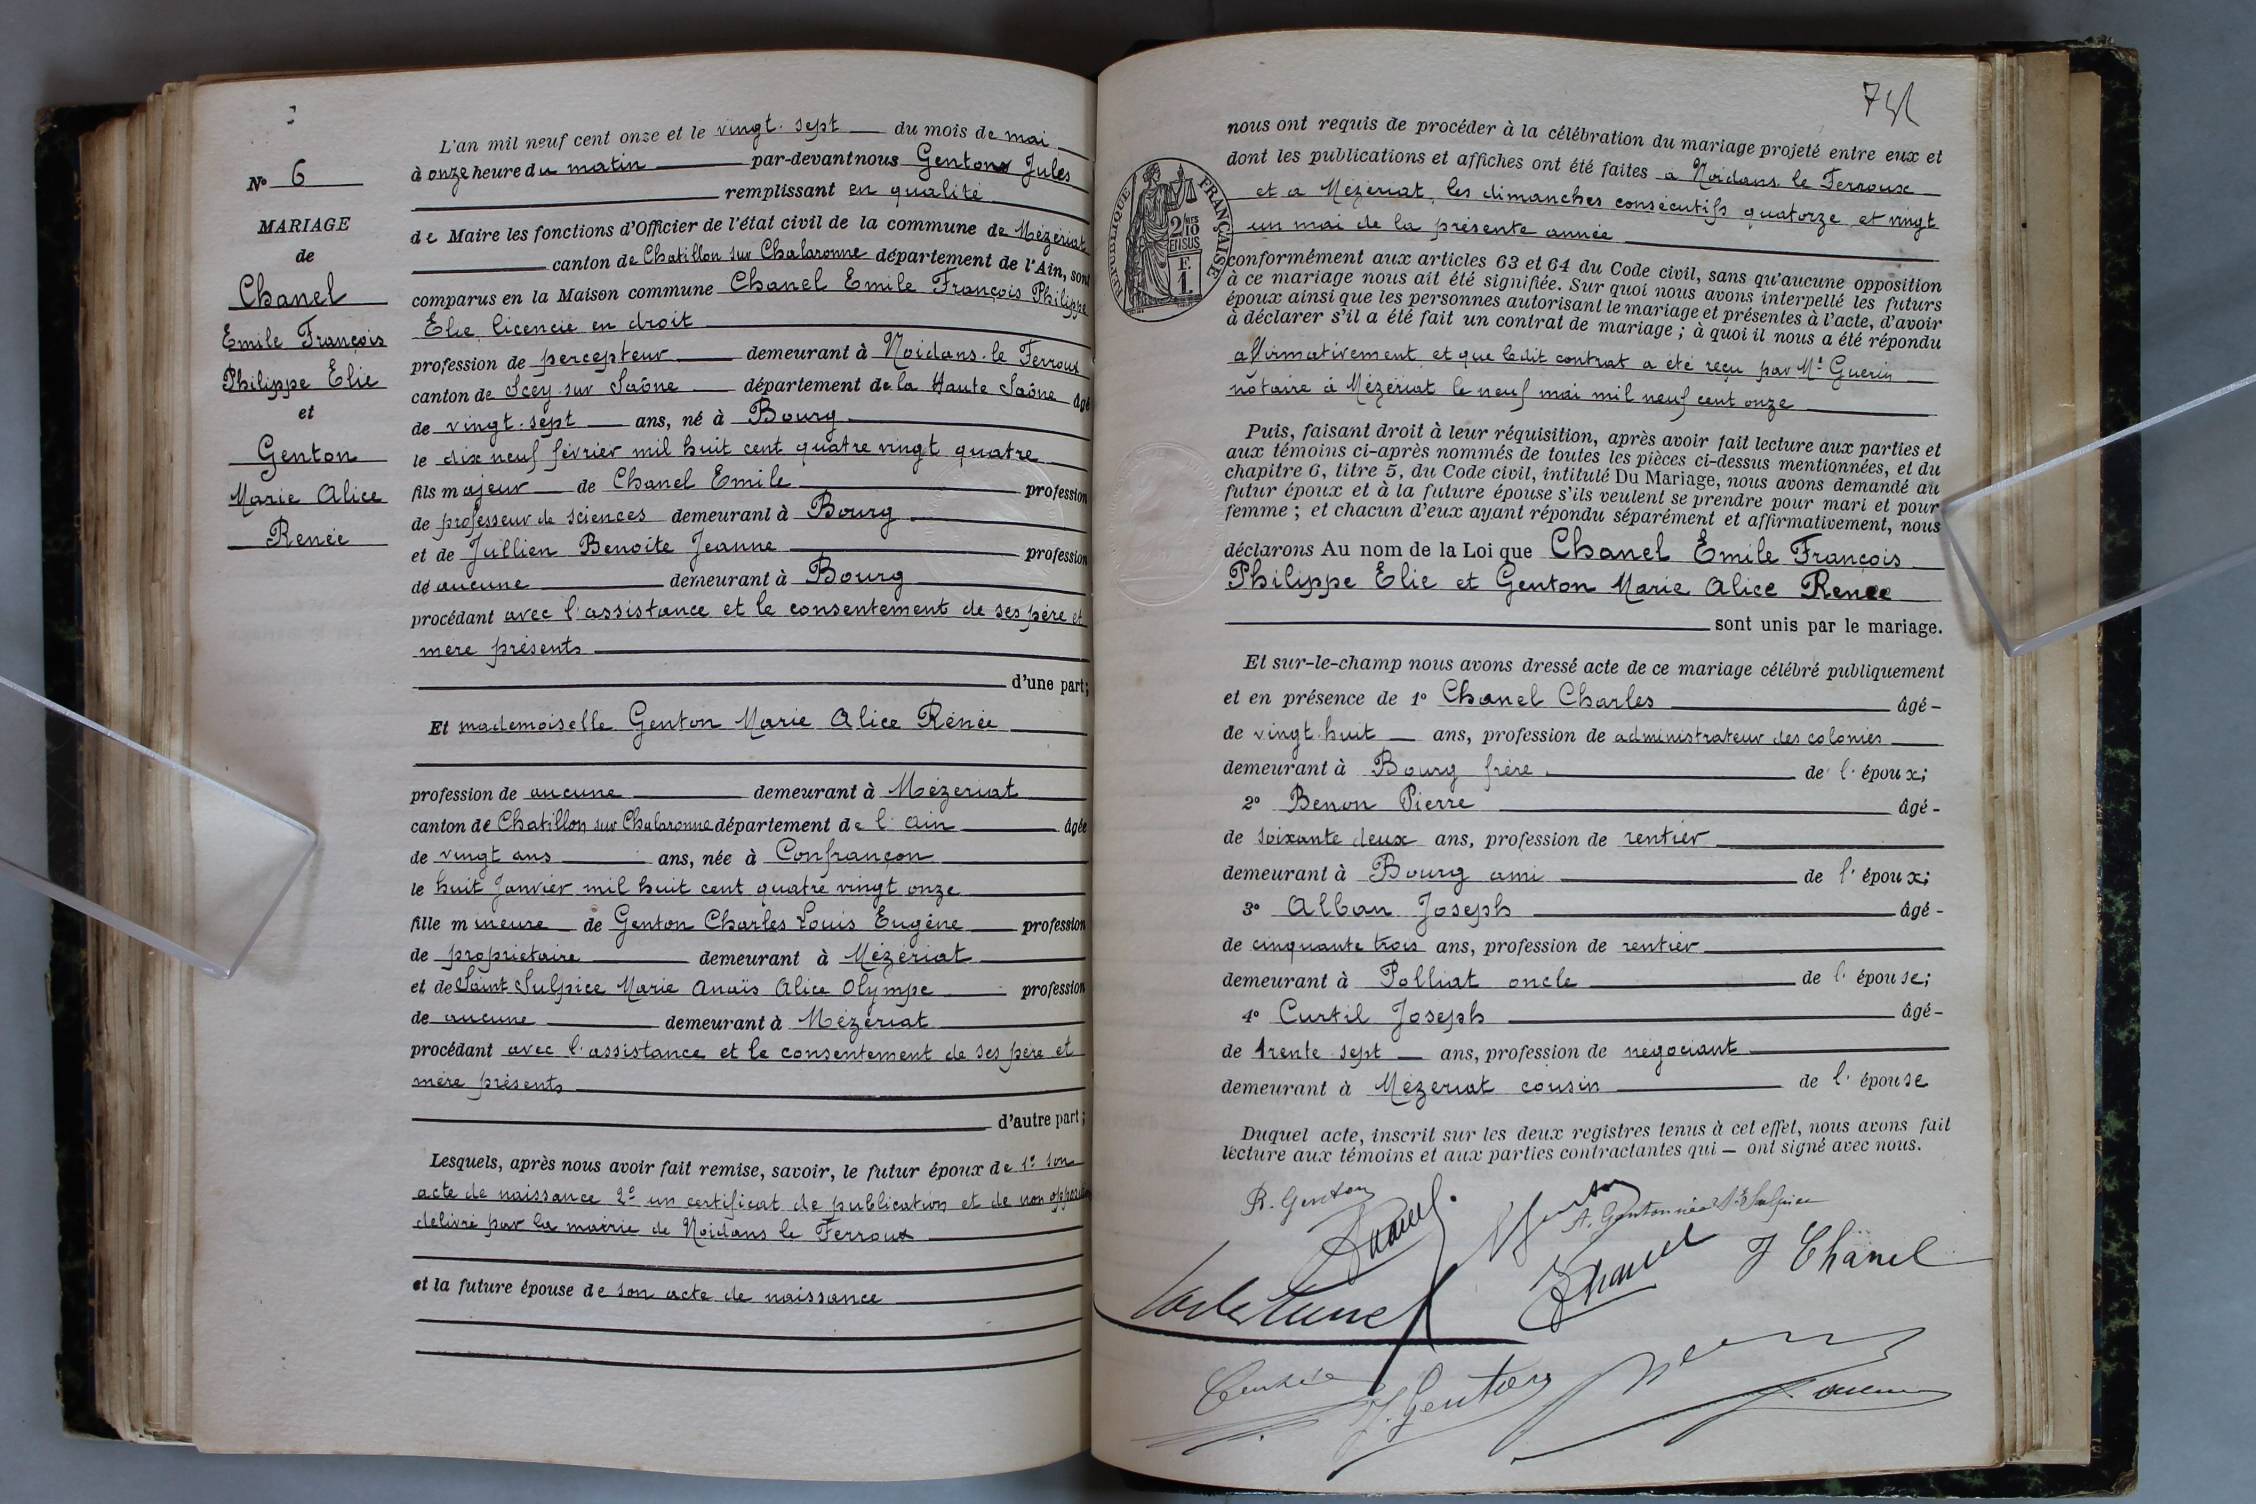 N° 6
MARIAGE
de
Chanel
Emile François
Philippe Elie
et
Genton
Marie Alice
Renée
L'an mil neuf cent onze et le vingt-sept du mois de mai
à onze heure du matin par-devant nous Genton Jules
remplissant en qualité
de Maire les fonctions d'Officier de l'état civil de la commune de Mézériat
canton de Chatillon sur Chalaronne département de l'Ain, sont
comparus en la Maison commune Chanel Emile François Philippe
Elie, licencié en droit
profession de percepteur demeurant à Noidans-le Ferroux
canton de Scey-sur Saône département de la Haute Saône âgé
de vingt-sept ans, né à Bourg
le dix neuf février mil huit cent quatre vingt quatre
fils majeur de Chanel Emile profession
de professeur de sciences demeurant à Bourg
et de Jullien Benoite Jeanne profession
de aucune demeurant à Bourg
procédant avec l'assistance et le consentement de ses père et
mère présents
d'une part;
Et mademoiselle Genton Marie Alice Rénée
profession de aucune demeurant à Mézériat
canton de Chatillon sur Chalaronne département de l'ain âgée
de vingt ans ans, née à Confrançon
le huit Janvier mil huit cent quatre vingt onze
fille mineure de Genton Charles Louis Eugène profession
de propriétaire demeurant à Mézériat
et de Saint Sulpice Marie Anaïs Alice Olympe profession
de aucune demeurant à Mézériat
procédant avec l'assistance et le consentement de ses père et
mère présents
d'autre part;
Lesquels, après nous avoir fait remise, savoir, le futur époux de 1° son
acte de naissance 2° un certificat de publication et de non opposition
délivré par la mairie de Noidans le Ferroux
et la future épouse de son acte de naissance
RÉPUBLIQUE FRANÇAISE
2/10
EN SUS
F.
1.
nous ont requis de procéder à la célébration du mariage projeté entre eux et
dont les publications et affiches ont été faites a Noidans le Ferroux
et a Mézériat, les dimanches consécutifs quatorze et vingt
un mai de la présente année
conformément aux articles 63 et 64 du Code civil, sans qu'aucune opposition
à ce mariage nous ait été signifiée. Sur quoi nous avons interpellé les futurs
époux ainsi que les personnes autorisant le mariage et présentes à l'acte, d'avoir
à déclarer s'il a été fait un contrat de mariage; à quoi il nous a été répondu
affirmativement et que ledit contrat a été reçu par Me Guerin
notaire à Mézériat le neuf mai mil neuf cent onze
Puis, faisant droit à leur réquisition, après avoir fait lecture aux parties et
aux témoins ci-après nommés de toutes les pièces ci-dessus mentionnées, et du
chapitre 6, titre 5, du Code civil, intitulé Du Mariage, nous avons demandé au
futur époux et à la future épouse s'ils veulent se prendre pour mari et pour
femme; et chacun d'eux ayant répondu séparément et affirmativement, nous
déclarons Au nom de la Loi que Chanel Emile François
Philippe Elie et Genton Marie Alice Renée
sont unis par le mariage.
Et sur-le-champ nous avons dressé acte de ce mariage célébré publiquement
et en présence de 1° Chanel Charles âgé
de vingt-huit ans, profession de administrateur des colonies
demeurant à Bourg frère de l'époux;
2° Benon Pierre âgé
de soixante deux ans, profession de rentier
demeurant à Bourg ami de l'époux;
3° Alban Joseph âgé
de cinquante trois ans, profession de rentier
demeurant à Polliat oncle de l'épouse;
4° Curtil Joseph âgé
de trente-sept ans, profession de négociant
demeurant à Mézériat cousin de l'épouse
Duquel acte, inscrit sur les deux registres tenus à cet effet, nous avons fait
lecture aux témoins et aux parties contractantes qui – ont signé avec nous.
R. Genton
A. Genton née St Sulpice
J Chanel
J. Genton